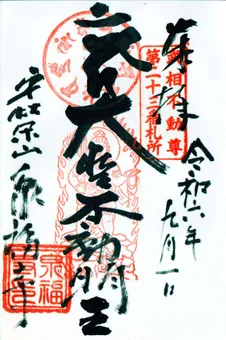 奉拝
武相不動尊
第二十三番札所
令和六年
月一日
大聖不動明王
山泉福寺
泉福寺印